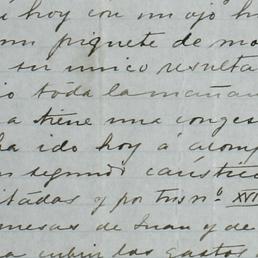 hoy con un ojo
un piquete de mo
su unico resulta
toda la mañan
a tiene una conges
ha ido hoy á acomp
segundo caústic
y por tres nº XVI
mesas de Juan y de
cubrir los gastos